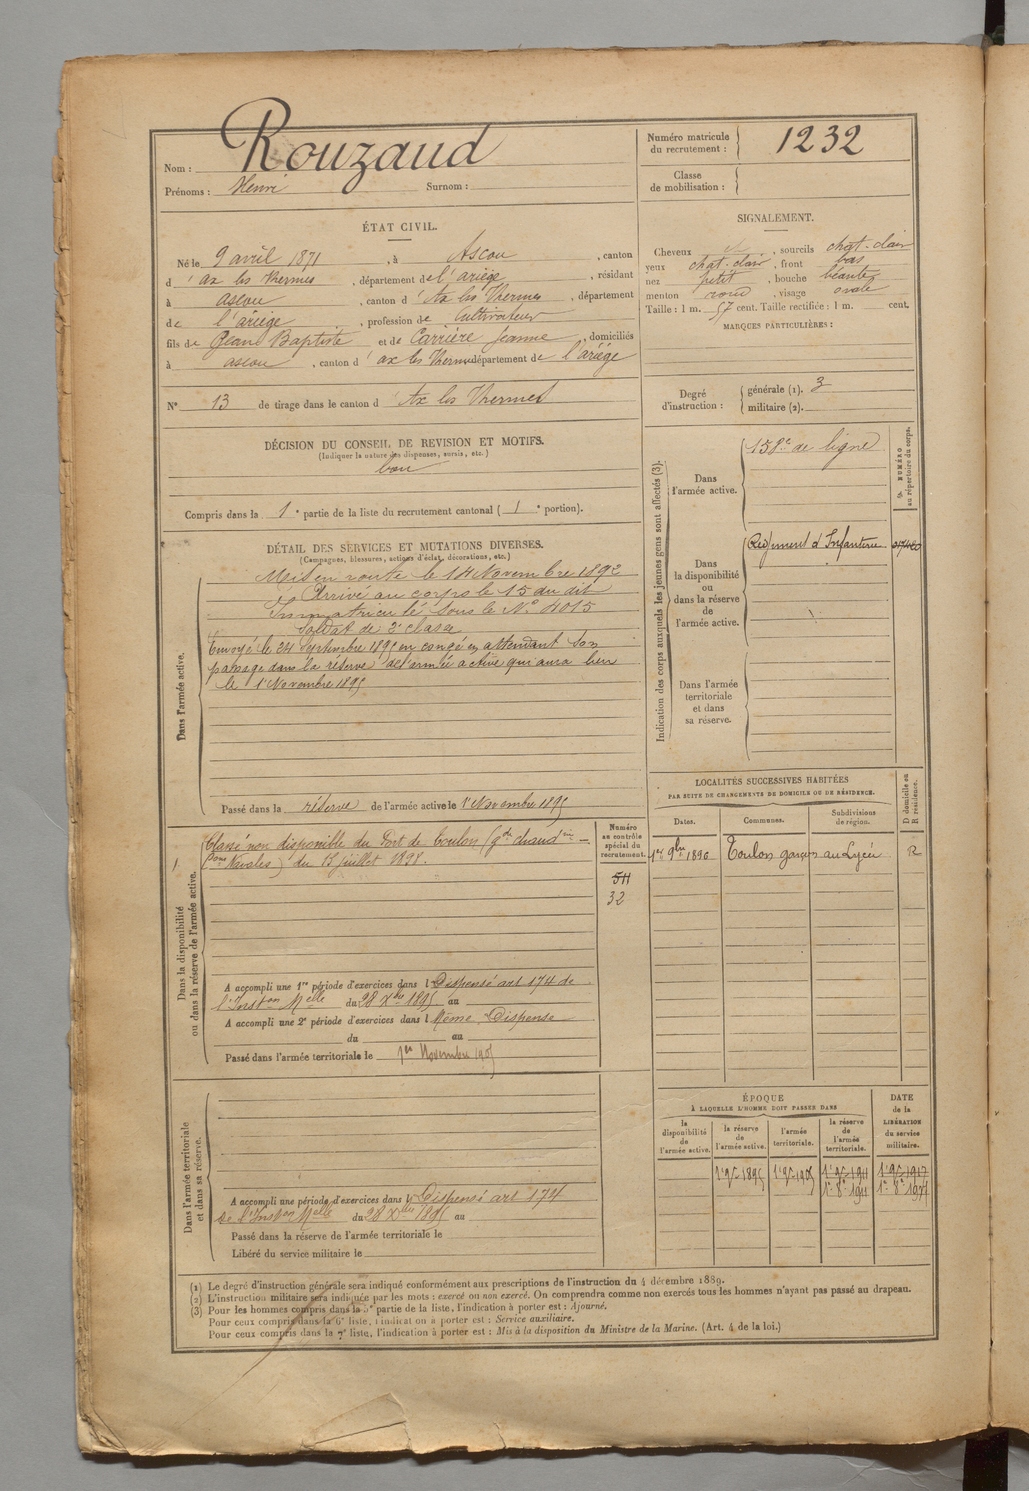 Nom : Rouzaud
Prénoms : Henri Surnom :
Numéro matricule du recrutement : 1232
Classe de mobilisation :
ÉTAT CIVIL.
Né le 9 avril 1871, à Ascou, canton
d' ax les thermes, département de l'ariège, résidant
à ascou, canton d' Ax les Thermes, département
de l'ariège, profession de Cultivateur
fils de Jean Baptiste et de Carrière Jeanne, domiciliés
à ascou, canton d' ax les Thermes département de l'ariège
N° 13 de tirage dans le canton d' Ax les Thermes
SIGNALEMENT.
Cheveux, sourcils chat-clair
yeux chat-clair, front bas
nez petit, bouche béante
menton rond, visage ovale
Taille : 1 m. 57 cent. Taille rectifiée : 1 m. cent.
MARQUES PARTICULIÈRES :
Degré d'instruction : générale (1). 3
militaire (2).
DÉCISION DU CONSEIL DE REVISION ET MOTIFS.
(Indiquer la nature des dispenses, sursis, etc.)
bon
Compris dans la 1e partie de la liste du recrutement cantonal ( 1e portion).
DÉTAIL DES SERVICES ET MUTATIONS DIVERSES.
(Campagnes, blessures, actions d'éclat, décorations, etc.)
Dans l'armée active.
Mis en route le 14 Novembre 1892
Arrivé au corps le 15 du dit
Immatriculé sous le N° 4015
Soldat de 2e classe
Envoyé le 24 Septembre 1895 en congé en attendant son
passage dans la réserve de l'armée active qui aura lieu
le 1 Novembre 1895
Passé dans la réserve de l'armée active le 1 Novembre 1895
Indication des corps auxquels les jeunes gens sont affectés (3).
NUMÉRO au répertoire du corps.
Dans l'armée active.
158e de ligne
Dans la disponibilité ou dans la réserve de l'armée active.
Régiment d'Infanterie
Dans l'armée territoriale et dans sa réserve.
LOCALITÉS SUCCESSIVES HABITÉES
PAR SUITE DE CHANGEMENTS DE DOMICILE OU DE RÉSIDENCE.
Dates. Communes. Subdivisions de région. D domicile ou R résidence.
1er 9bre 1896 Toulon garçon au Lycée R
Dans la disponibilité ou dans la réserve de l'armée active.
Numéro au contrôle spécial du recrutement.
511
32
Classé non disponible du Port de Toulon
Navales) du 15 Juillet 1898.
A accompli une 1re période d'exercices dans l Dispensé art 174 de
l'Inston Melle du 28 Xbre 1895 au
A accompli une 2e période d'exercices dans l Même Dispense
du au
Passé dans l'armée territoriale le 1er Novembre 1905
Dans l'armée territoriale et dans sa réserve.
A accompli une période d'exercices dans l Dispensé art 174
de l'Inston Melle du 28 Xbre 1895 au
Passé dans la réserve de l'armée territoriale le
Libéré du service militaire le
ÉPOQUE
À LAQUELLE L'HOMME DOIT PASSER DANS
la disponibilité de l'armée active. la réserve de l'armée active. l'armée territoriale. la réserve de l'armée territoriale.
DATE de la LIBÉRATION du service militaire.
1 9bre 1895 1 9bre 1905 1 9bre 1911 1 9bre 1917
1er 8e 1911 1er 8e 1917
(1) Le degré d'instruction générale sera indiqué conformément aux prescriptions de l'instruction du 4 décembre 1889.
(2) L'instruction militaire sera indiquée par les mots : exercé ou non exercé. On comprendra comme non exercés tous les hommes n'ayant pas passé au drapeau.
(3) Pour les hommes compris dans la 5e partie de la liste, l'indication à porter est : Ajourné.
Pour ceux compris dans la 6e liste, l'indication à porter est : Service auxiliaire.
Pour ceux compris dans la 7e liste, l'indication à porter est : Mis à la disposition du Ministre de la Marine. (Art. 4 de la loi.)